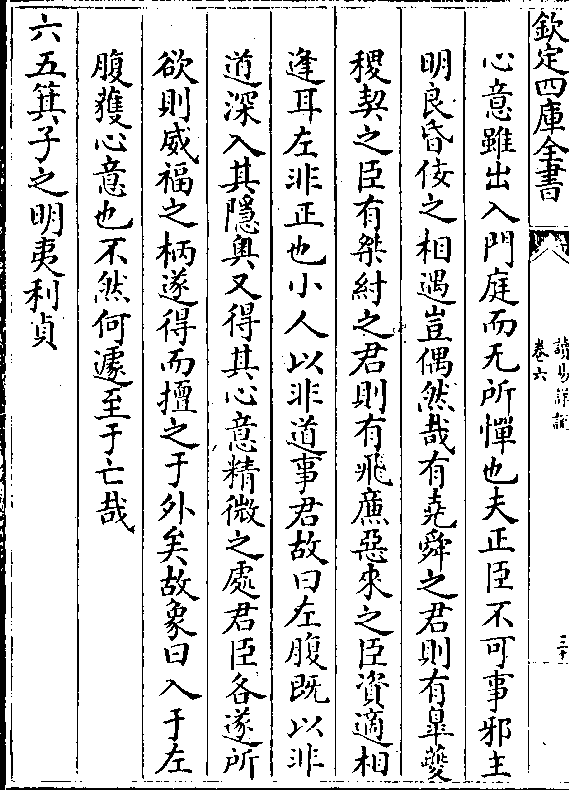 欽定四庫全書
讀易詳說
卷六
心意雖出入門庭而无所憚也夫正臣不可事邪主
明良昏佞之相遇豈偶然哉有堯舜之君則有臯夔
稷契之臣有桀紂之君則有飛廉惡來之臣資適相
逢耳左非正也小人以非道事君故曰左腹既以非
道深入其隱奥又得其心意精微之處君臣各遂所
欲則威福之柄遂得而擅之于外矣故象曰入于左
腹獲心意也不然何遽至于亡哉
六五箕子之明夷利貞